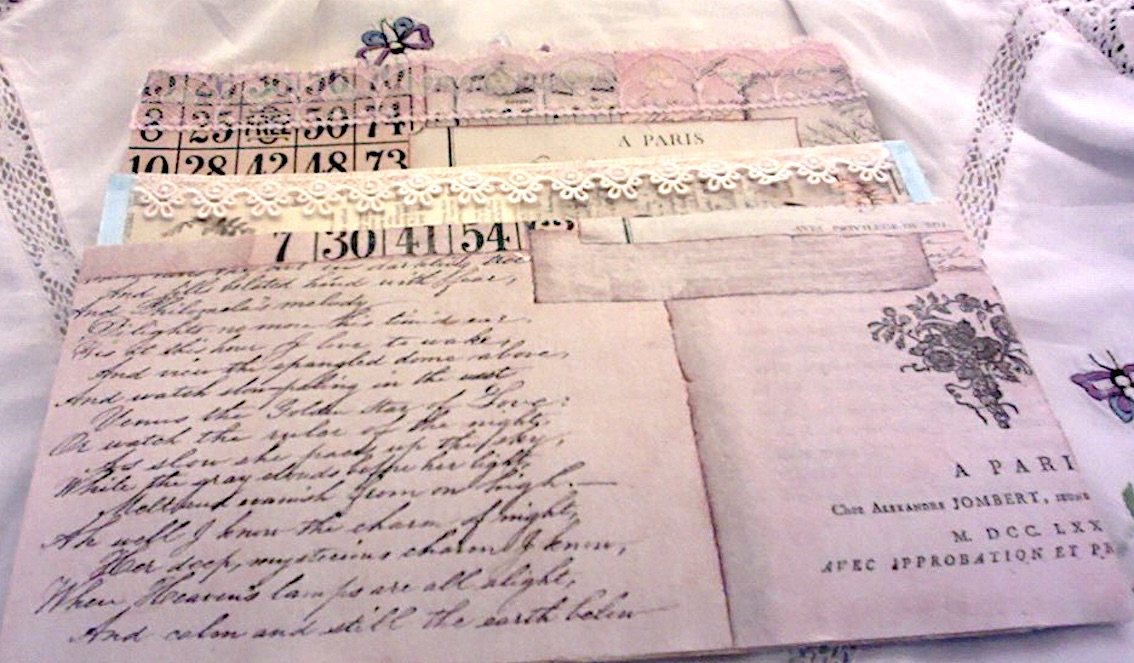 8 25 FREE 50 74
A PARIS
10 28 42 48 73
7 30 41 54
And belated hind with fear,
And Philomela's melody
Delights no more this timid ear.
'Tis at this hour of love to wake,
And view the spangled dome above,
And watch in the west
Venus the Golden Star of Love:
Or watch the ruler of the night,
As slow she paces up the sky,
While the gray clouds before her light,
Melt and vanish from on high.—
Ah well I know the charm of night,
Her deep, mysterious charm I know,
When Heaven's lamps are all alight,
And calm and still the earth below
A PARI
Chez Alexandre JOMBERT, jeune
M. DCC. LXX
AVEC APPROBATION ET PR